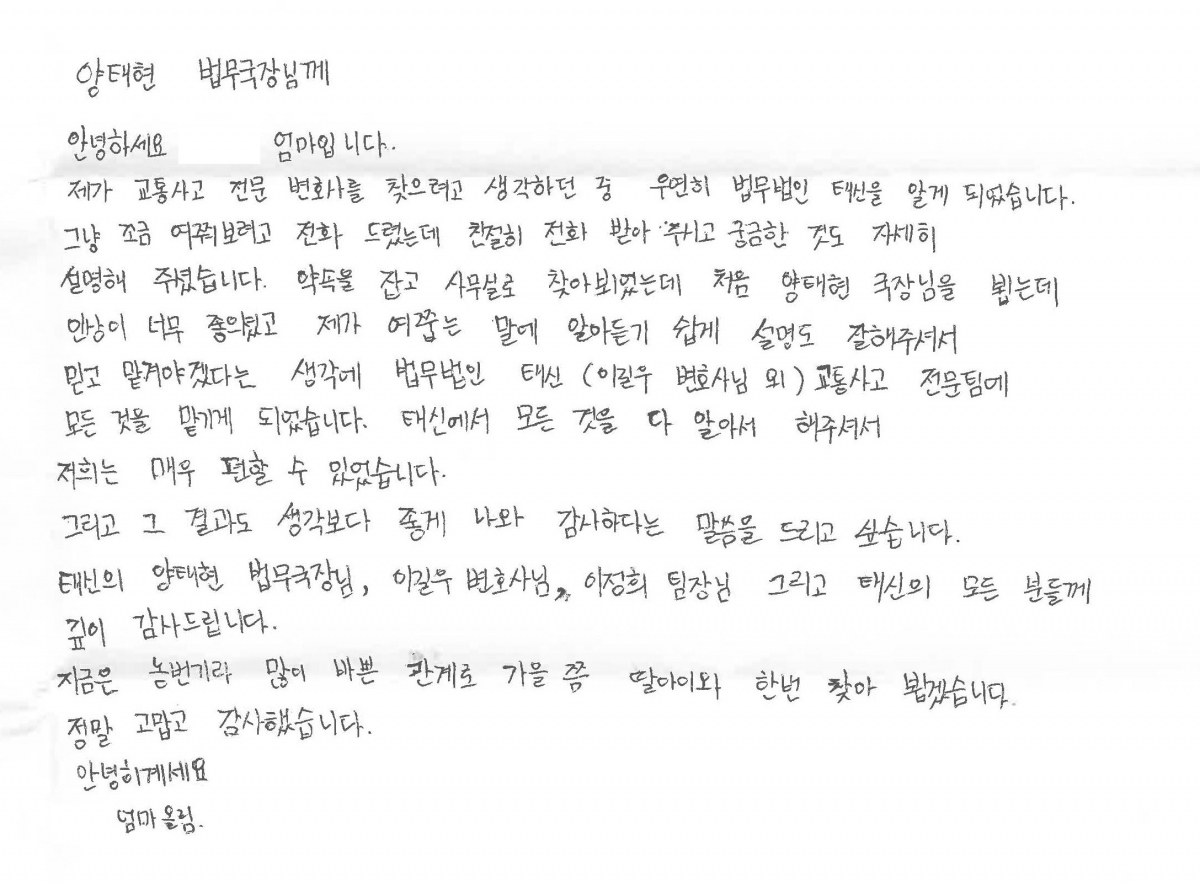 양태현 법무국장님께
안녕하세요 엄마입니다..
제가 교통사고 전문 변화사를 찾으려고 생각하던 중 우연히 법무법인 태신을 알게 되었습니다.
그냥 조금 여쭤보려고 전화 드렸는데 친절히 전화 받아 주시고 궁금한 것도 자세히
설명해 주셨습니다. 약속을 잡고 사무실로 찾아뵈었는데 처음 양태현 국장님을 뵙는데
인상이 너무 좋으셨고 제가 여쭙는 말에 알아듣기 쉽게 설명도 잘해주셔서
믿고 맡겨야겠다는 생각에 법무법인 태신 (이길우 변호사님 외) 교통사고 전문팀에
모든 것을 맡기게 되었습니다. 태신에서 모든 것을 다 알아서 해주셔서
저희는 매우 편할 수 있었습니다.
그리고 그 결과도 생각보다 좋게 나와 감사하다는 말씀을 드리고 싶습니다.
태신의 양태현 법무국장님, 이길우 변호사님, 이정희 팀장님 그리고 태신의 모든 분들께
깊이 감사드립니다.
지금은 농번기라 많이 바쁜 관계로 가을 쯤 딸아이와 한번 찾아 뵙겠습니다.
정말 고맙고 감사했습니다.
안녕히계세요
엄마 올림.